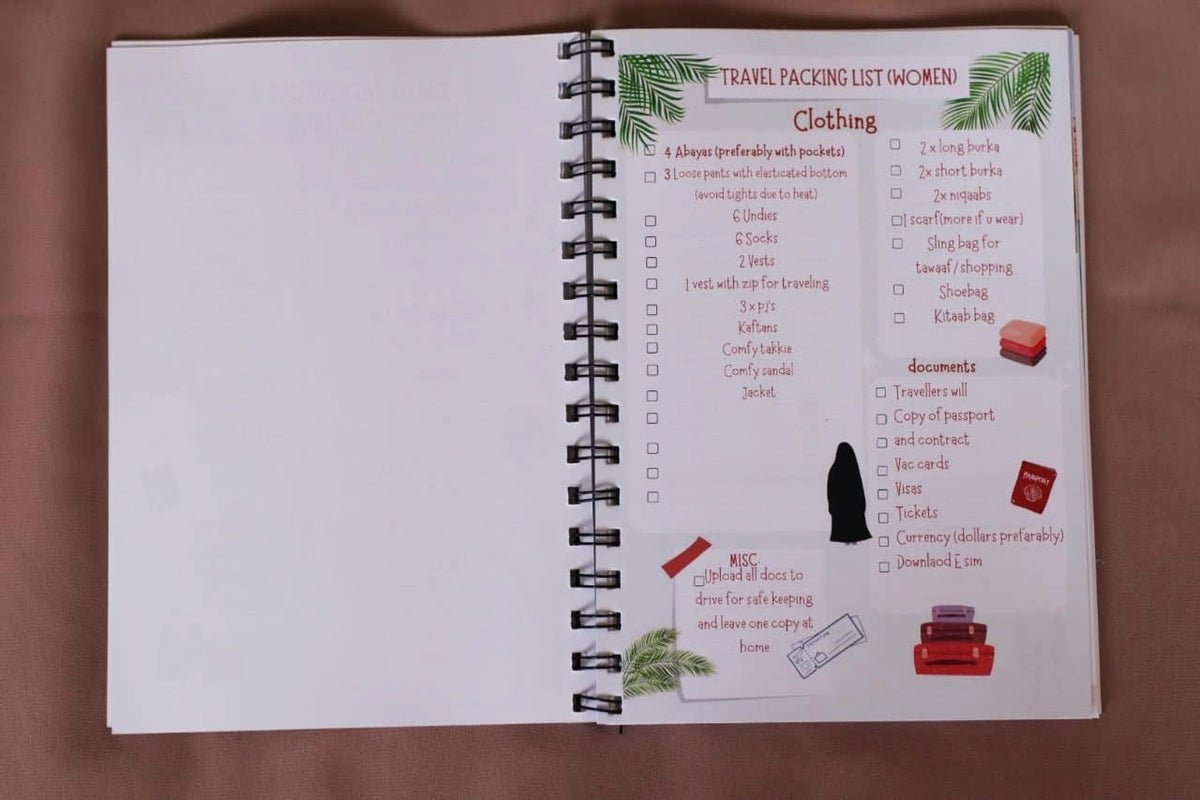 TRAVEL PACKING LIST (WOMEN)
Clothing
4 Abayas (preferably with pockets)
3 Loose pants with elasticated bottom
(avoid tights due to heat)
6 Undies
6 Socks
2 Vests
1 vest with zip for traveling
3 x pj's
Kaftans
Comfy takkie
Comfy sandal
Jacket
2 x long burka
2x short burka
2x niqaabs
1 scarf(more if u wear)
Sling bag for
tawaaf/shopping
Shoebag
Kitaab bag
documents
Travellers will
Copy of passport
and contract
Vac cards
Visas
Tickets
Currency (dollars prefarably)
Downlaod E sim
PASSPORT
MISC.
Upload all docs to
drive for safe keeping
and leave one copy at
home